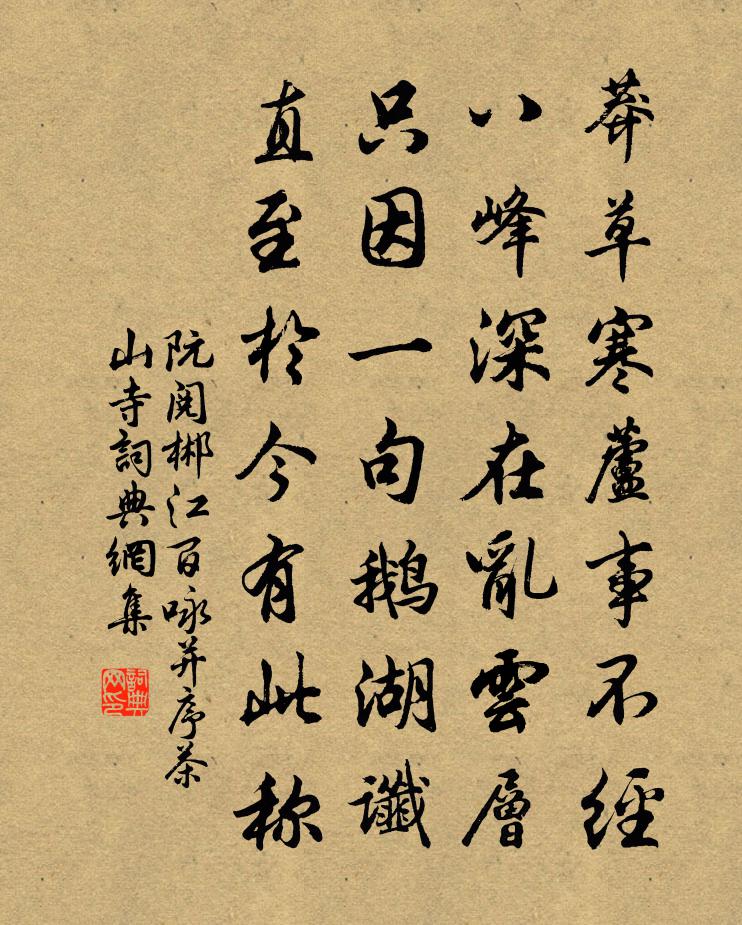 莽草寒蘆事不經
八峰深在亂雲層
只因一句鵝湖讖
直至於今有此称
阮閱郴江百咏并序茶
山寺詞典網集
詞典网印